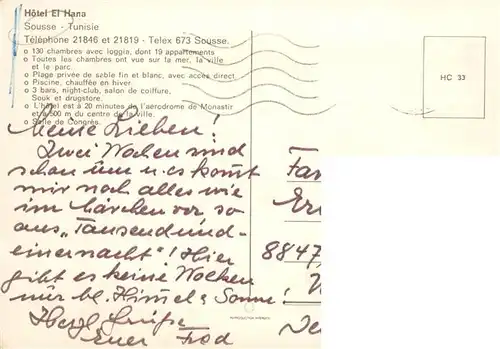 Hôtel El Hana
Sousse - Tunisie
Téléphone 21846 et 21819 - Telex 673 Sousse.
o 130 chambres avec loggia, dont 19 appartements
o Toutes les chambres ont vue sur la mer, la ville
et le parc.
o Plage privée de sable fin et blanc, avec accès direct
o Piscine, chauffée en hiver
o 3 bars, night-club, salon de coiffure,
Souk et drugstore.
o L'hôtel est à 20 minutes de l'aérodrome de Monastir
et à 500 m du centre de la ville.
o Salle de Congrès.
HC 33
Meine Lieben!
Zwei Wochen sind
schon um u. es komt
mir noch alles wie
im Märchen vor, so
aus "Tausendund-
einernacht"! Hier
gibt es keine Wolken
nur bl. Himel & Sonne!
Herzl. Grüße
Euer
Fa
8847